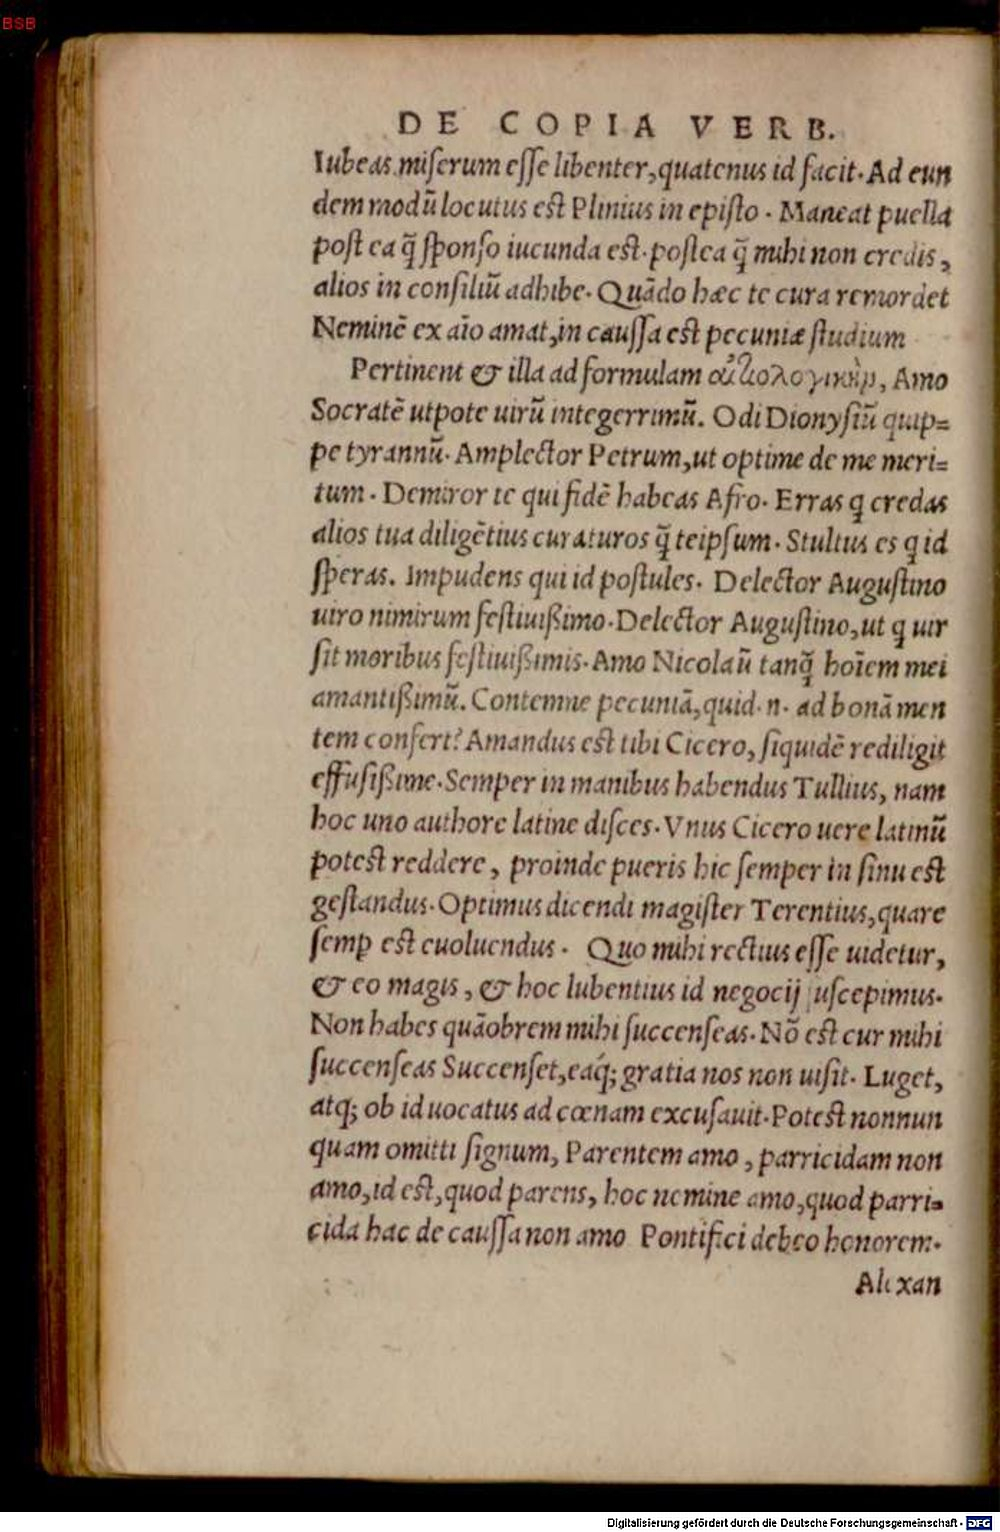 BSB
DE COPIA VERB.
Iubeas miſerum eſſe libenter, quatenus id facit. Ad eun
dem modū locutus eſt Plinius in epiſto. Maneat puella
poſt ea q̄ ſponſo iucunda eſt. poſtea q̄ mihi non credis,
alios in conſiliū adhibe. Quādo hæc te cura remordet
Neminē ex aīo amat, in cauſſa eſt pecuniæ ſtudium
Pertinent & illa ad formulam Amo
Socratē utpote uirū integerrimū. Odi Dionyſiū quip=
pe tyrannū. Amplector Petrum, ut optime de me meri=
tum. Demiror te qui fidē habeas Afro. Erras ꝗ credas
alios tua diligētius curaturos q̄ teipſum. Stultus es ꝗ id
ſperas. Impudens qui id poſtules. Delector Auguſtino
uiro nimirum feſtiuißimo. Delector Auguſtino, ut ꝗ uir
ſit moribus feſtiuißimis. Amo Nicolaū tanq̄ hoīem mei
amantißimū. Contemne pecuniā, quid. n. ad bonā men
tem confert? Amandus eſt tibi Cicero, ſiquidē rediligit
effuſißime. Semper in manibus habendus Tullius, nam
hoc uno authore latine diſces. Vnus Cicero uere latinū
poteſt reddere, proinde pueris hic ſemper in ſinu eſt
geſtandus. Optimus dicendi magiſter Terentius, quare
ſemꝑ eſt euoluendus. Quo mihi rectius eſſe uidetur,
& eo magis, & hoc lubentius id negocij ſuſcepimus.
Non habes quāobrem mihi ſuccenſeas. Nō eſt cur mihi
ſuccenſeas Succenſet, eáq; gratia nos non uiſit. Luget,
atq; ob id uocatus ad cœnam excuſauit. Poteſt nonnun
quam omitti ſignum, Parentem amo, parricidam non
amo, id eſt, quod parens, hoc nemine amo, quod parri=
cida hac de cauſſa non amo Pontifici debeo honorem.
Alexan
Digitalisierung gefördert durch die Deutsche Forschungsgemeinschaft - DFG